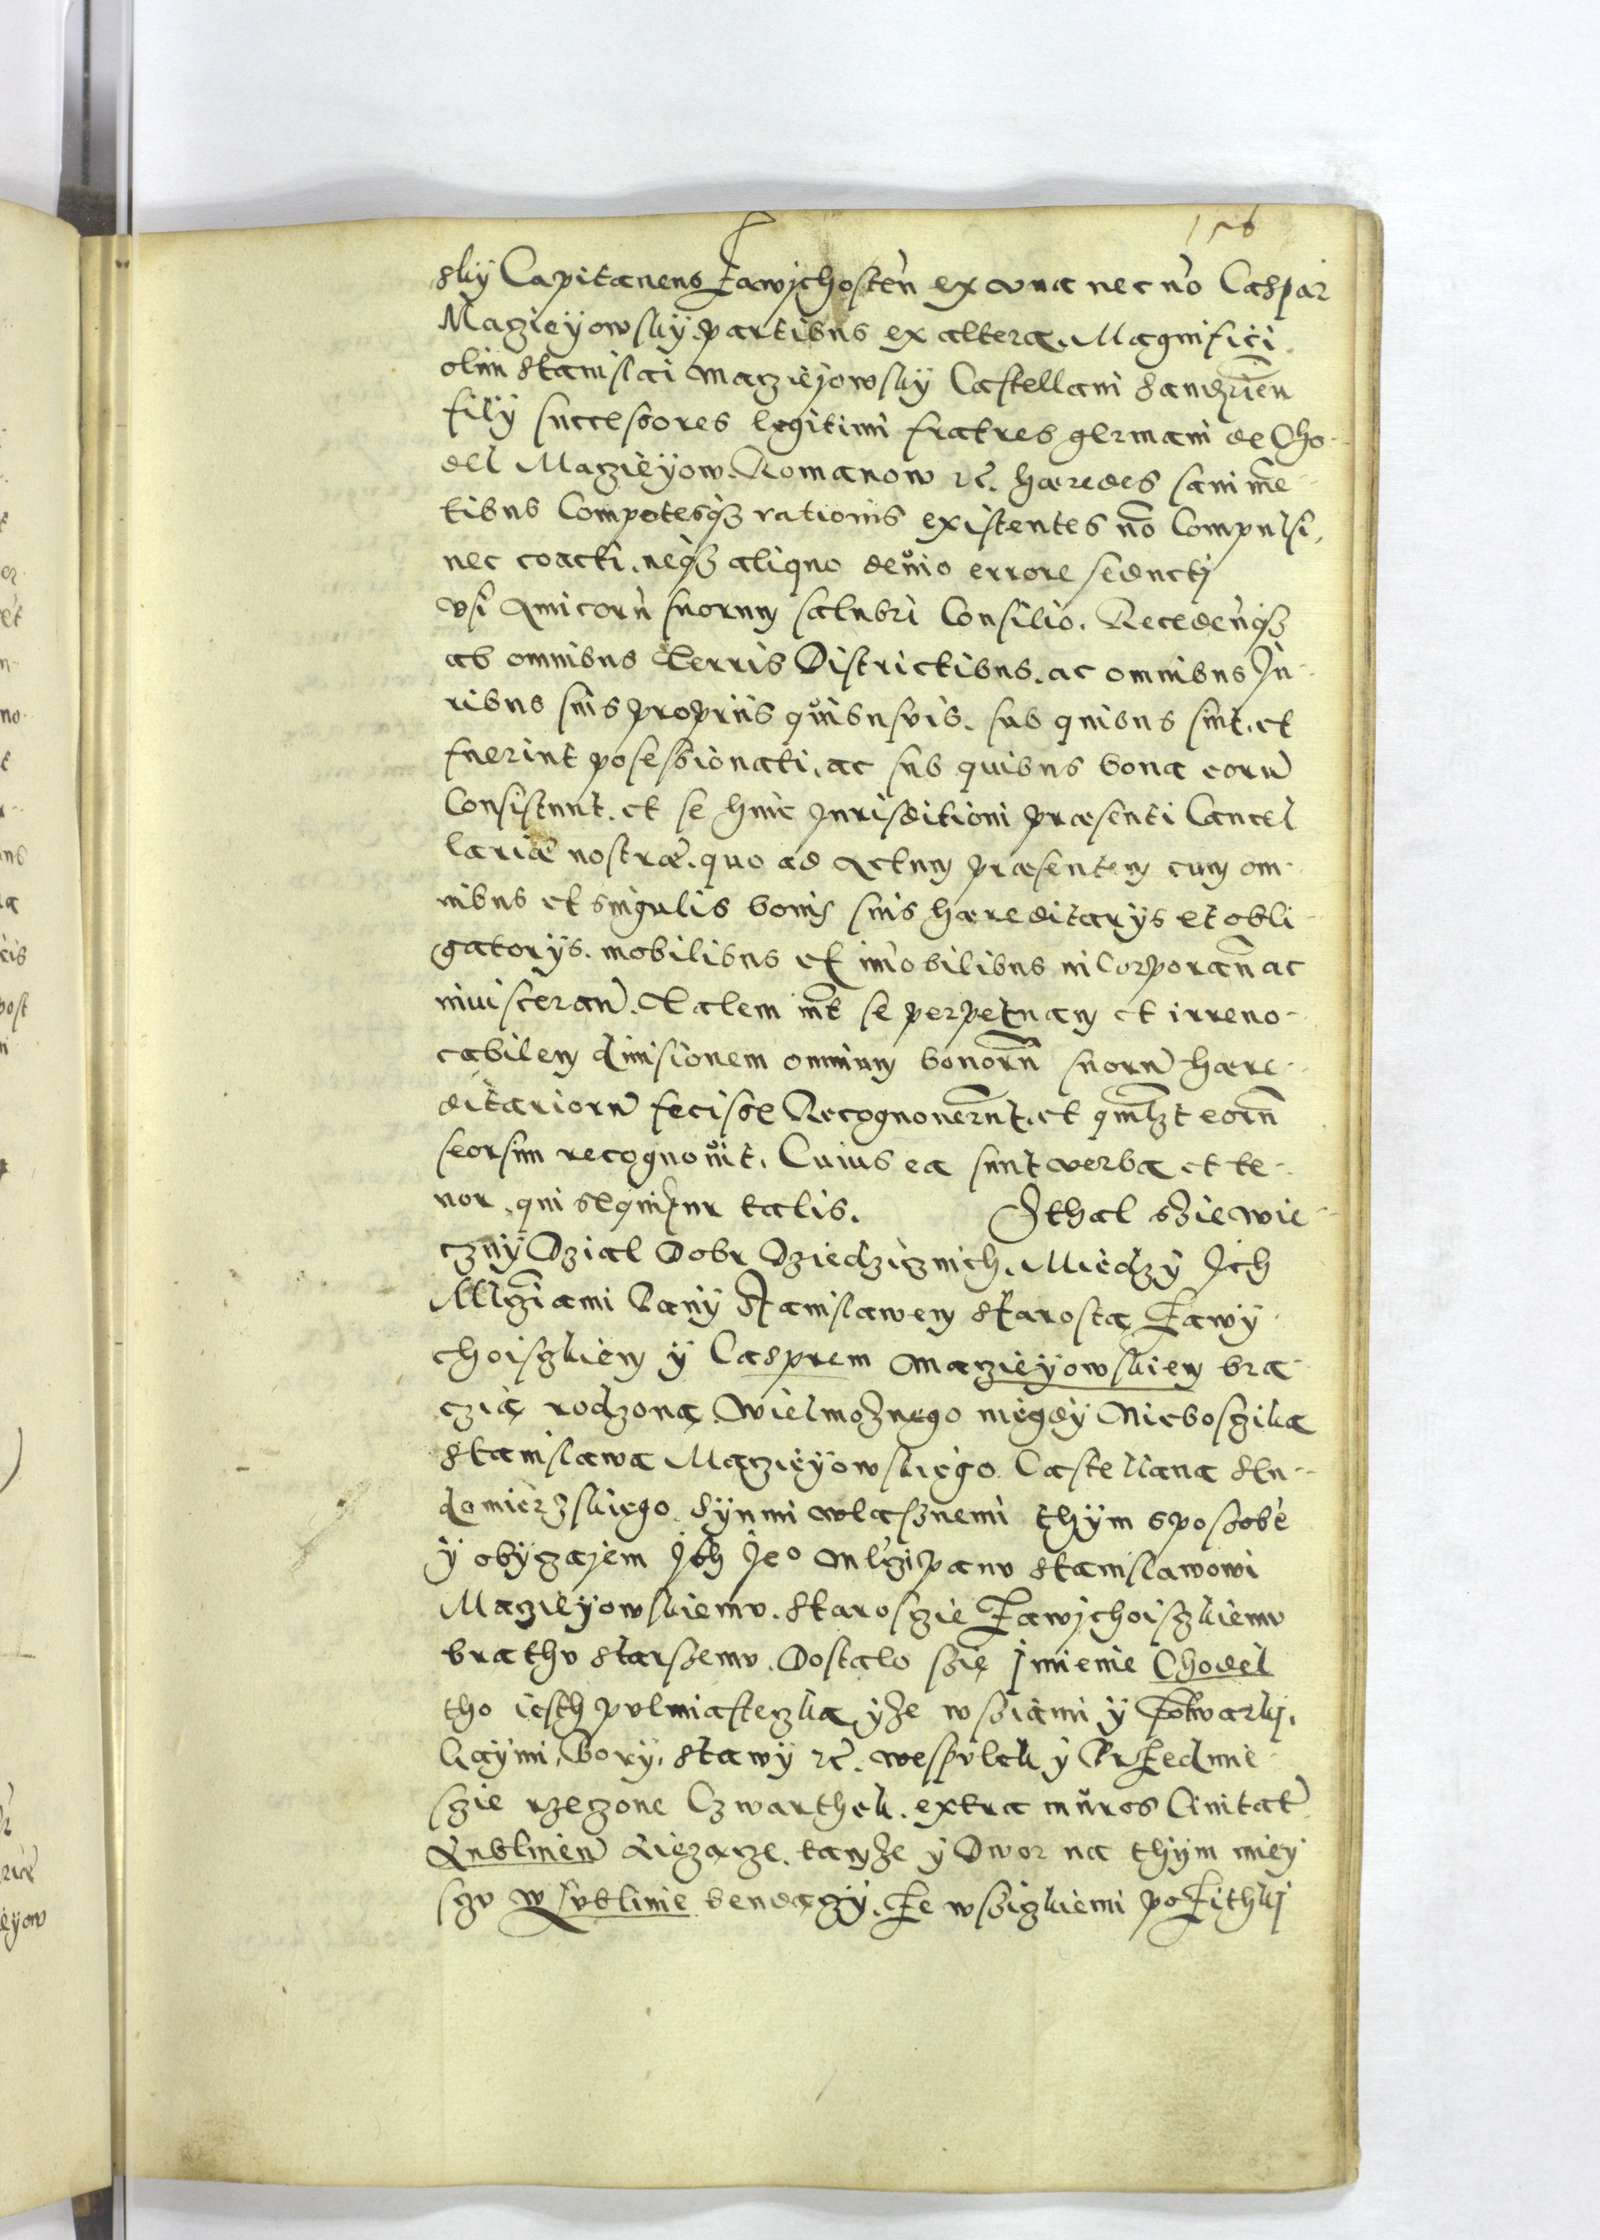 156
sky Capitaneus Zawichosteñ ex vna nec nõ Caspar
Maczieyowsky partibus ex altera. Magnifici
olim Stanislai Maczieyowsky Castellani Sandzirien̄
filÿ successores legitimi fratres germani de Cho-
del Maczieyow. Romanow &c. haeredes sani men̄-
tibus Compotesq3 rationis existentes nō Compulsi,
nec coacti, neq3 aliquo deuio errore seducti
vsi Amicorū suorum salubri Consilio. Recedeñq3
ab omnibus Terris Districtibus, ac omnibus Ju-
ribus suis proprijs quibusuis. sub quibus sint, et
fuerint posessionati, ac sub quibus bona eorū
Consistunt. et se huic Jurisditioni praesenti Cancel
lariae nostrae. quo ad Actum praesentem cum om-
nibus et singulis bonis suis haereditarÿs et obli-
gatorÿs. mobilibus et im̄obilibus incorporan̄ ac
inuisceran̄. Talem int̄ se perpetuam et irreuo-
cabilem diuisionem omnium bonorū suorū haere-
ditariorū fecisse Recognouerūt, et quilz̄t eorū
seorsim recognouit. Cuius ea sunt verba et te-
nor, qui sequitur talis. Sthal szie wie-
cznÿ Dzial Dobr Dziedzicznich. Miedzÿ Ich
Mcziami Panÿ Stanislawem Starostą Zawÿ
choiszkiem ÿ Casprem Maczieyowskiem bra-
czią rodzoną Wielmoznego niegdÿ Nieboszika
Stanislawa Maczieyowskiego Castellana Sen-
domierzskiego. Sÿnmi wlasznemi thÿm sposobē
ÿ obyczajem Isth Jeo Mczi panu Stanislawowi
Maczieyowskiemu. Starosczie Zawichoiszkiemu
brathu Starszemu. Dostalo szie Imienie Chodel
tho iesth pulmiasteczka ÿze wsziami ÿ Folwarki.
Gaÿmi, Borÿ, Stawÿ &c. wespulek ÿ Przedmie-
szie rzeczone Czwarthek. extra muros Ciuitat̄
Lublinen̄ Liezące. tamze ÿ Dwor na thÿm miey
sczu w Lublinie bendączÿ. Ze wszizkiemi pozithki